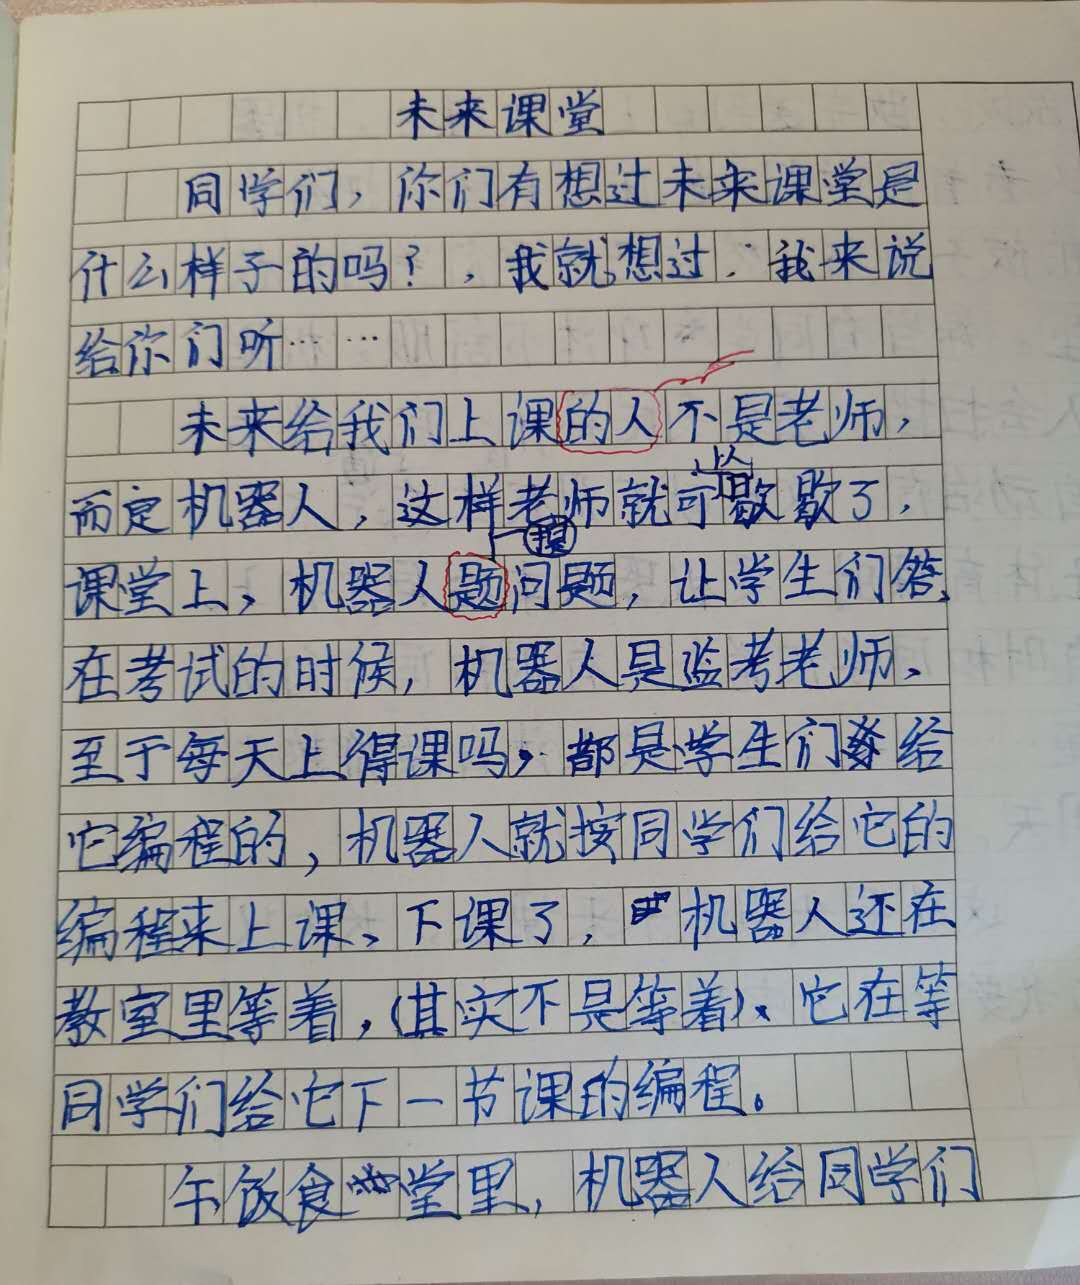 未来课堂
同学们，你们有想过未来课堂是
什么样子的吗？，我就想过.我来说
给你们听……
未来给我们上课的人不是老师，
而定机器人，这样老师就可以让歇歇了.
课堂上、机器人题提问题，让学生们答、
在考试的时候，机器人是监考老师、
至于每天上得课吗，都是学生们给
它编程的，机器人就按同学们给它的
编程来上课、下课了，机器人还在
教室里等着，(其实不是等着)、它在等
同学们给它下一节课的编程。
午饭食堂里，机器人给同学们